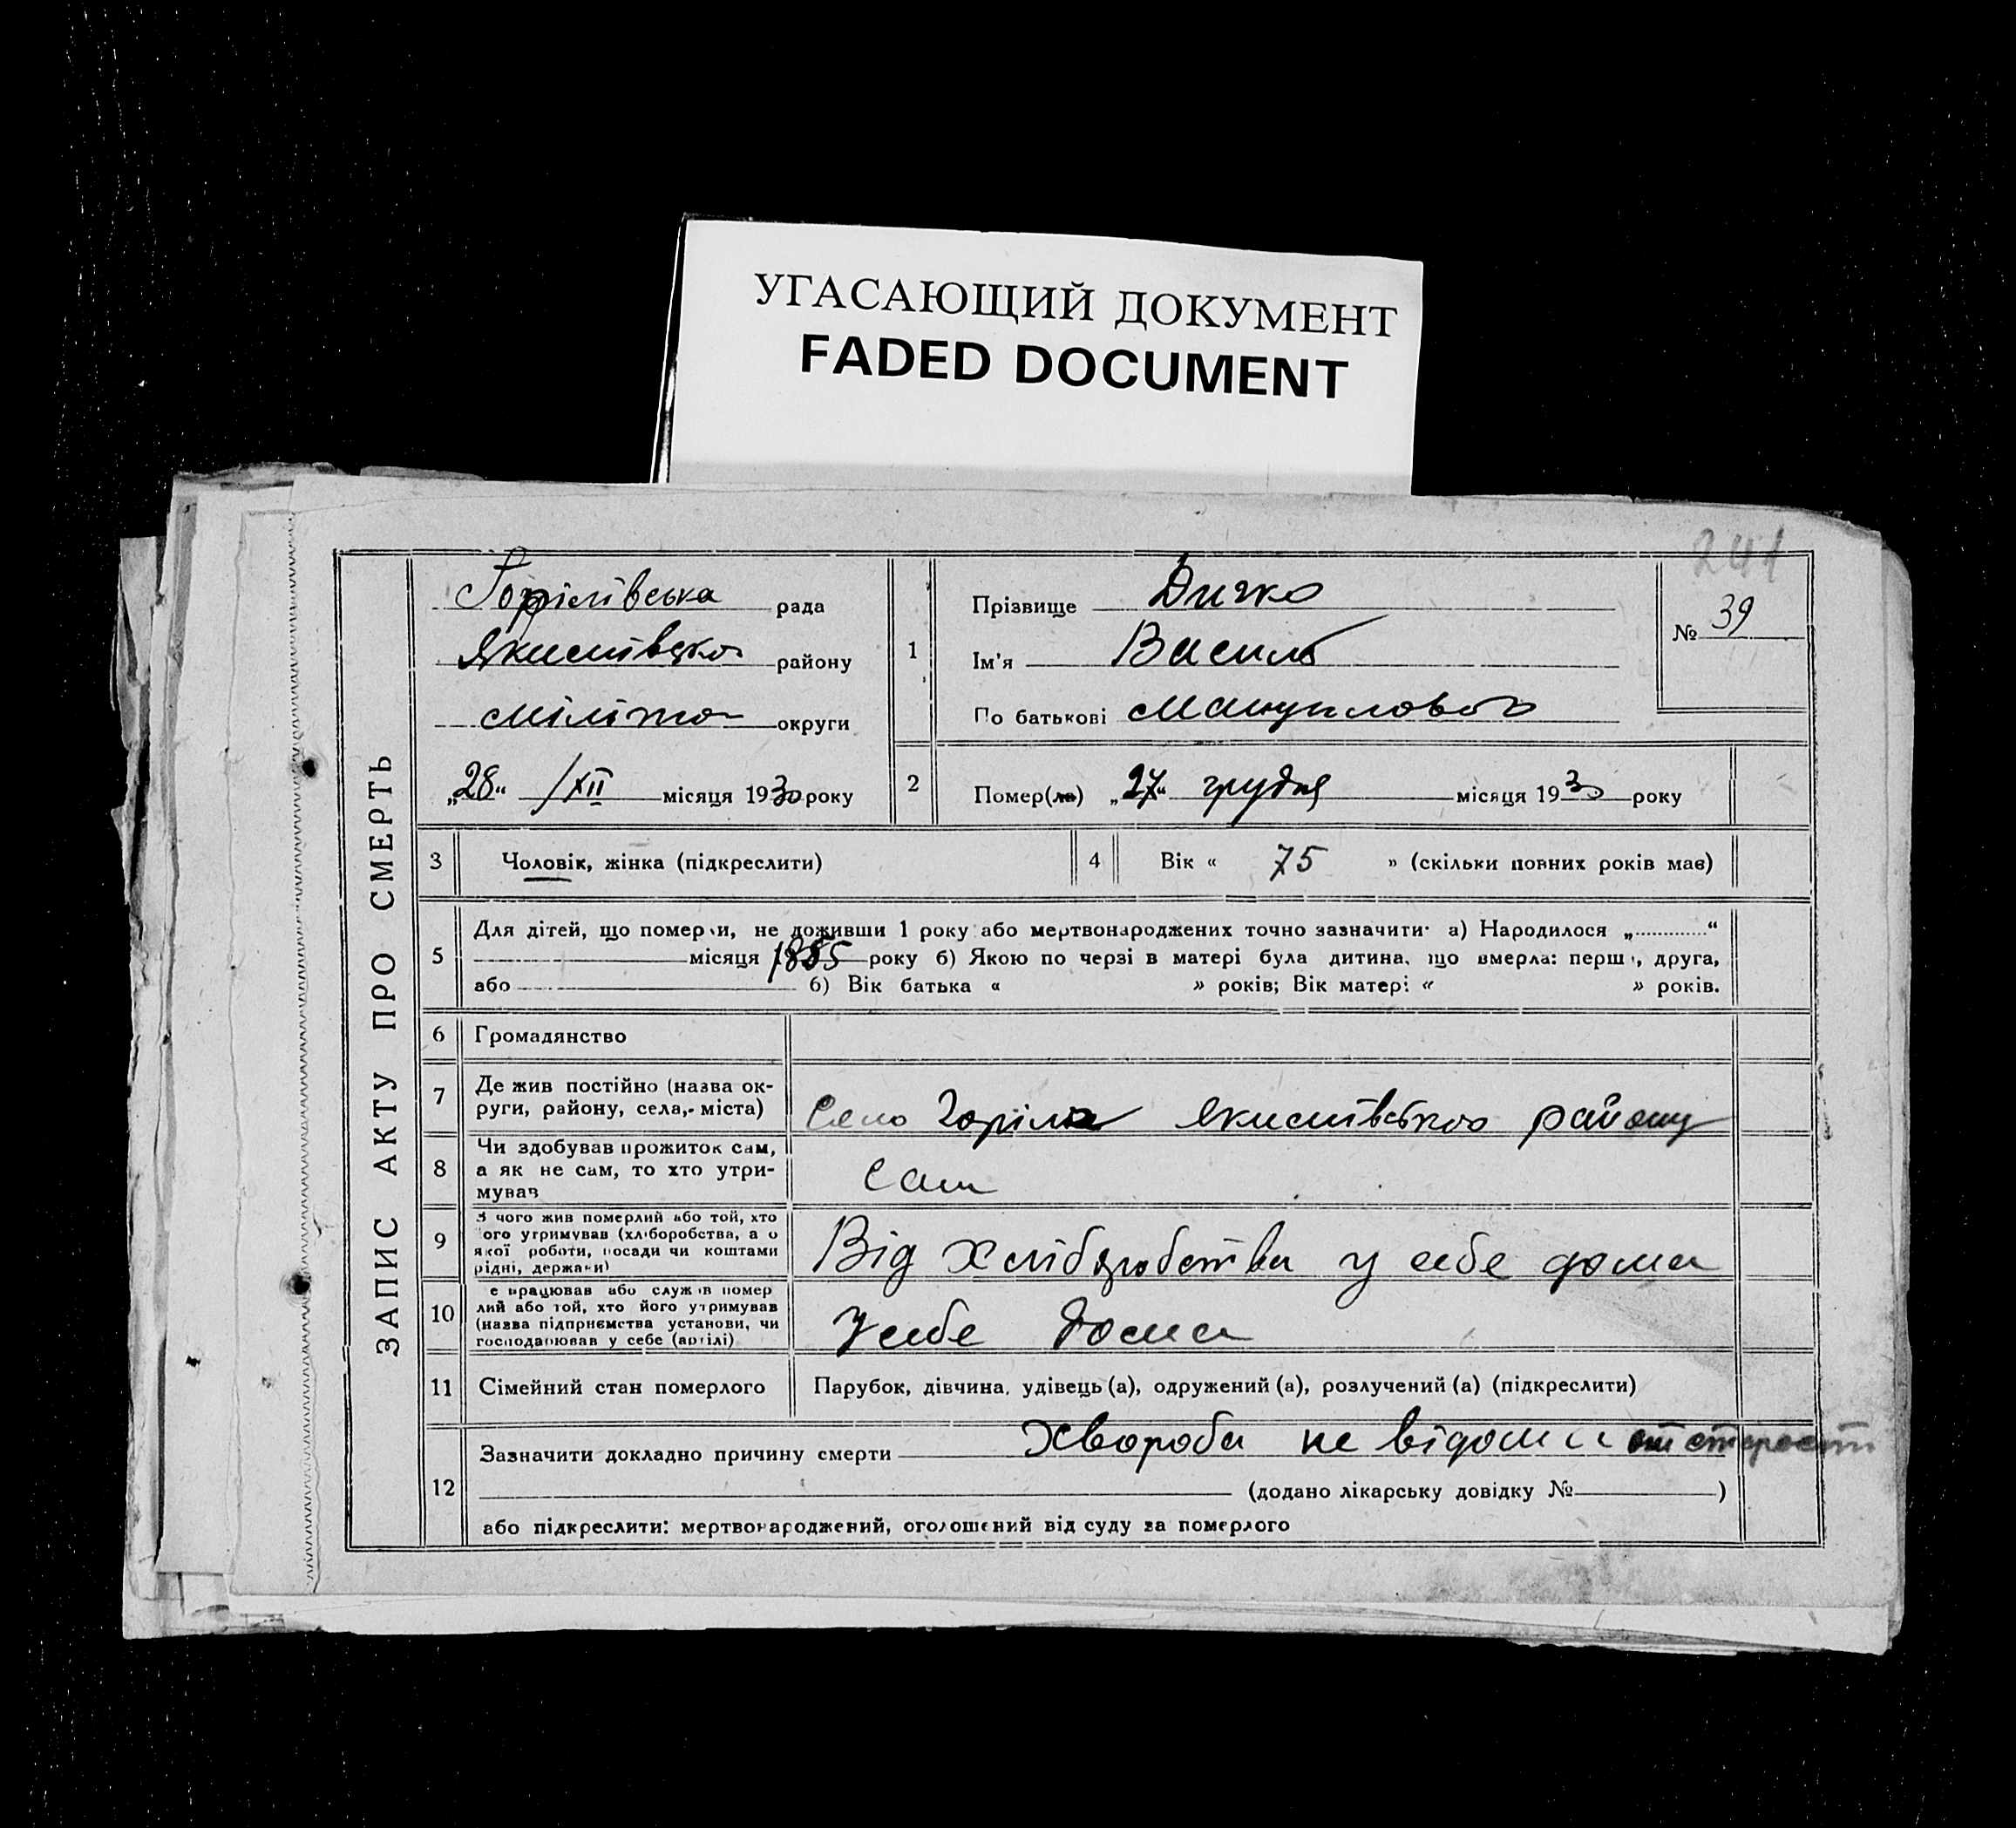 УГАСАЮЩИЙ ДОКУМЕНТ
FADED DOCUMENT
241
ЗАПИС АКТУ ПРО СМЕРТЬ
Горілівська рада
району
округи
„28“ /XII місяця 1930 року
1
Прізвище Дичко
Ім'я Василь
По батькові Мануилович
№ 39
2
Помер(ла) „27“ грудня місяця 1930 року
3 Чоловік, жінка (підкреслити)
4 Вік « 75 » (скільки повних років має)
5
Для дітей, що померли, не доживши 1 року або мертвонароджених точно зазначити: а) Народилося „............“
місяця 1855 року б) Якою по черзі в матері була дитина, що вмерла: перша, друга,
або б) Вік батька « » років; Вік матері « » років.
6 Громадянство
7
Де жив постійно (назва ок-
руги, району, села, міста)
Село Горіле району
8
Чи здобував прожиток сам,
а як не сам, то хто утри-
мував
Сам
9
З чого жив померлий або той, хто
його утримував (хліборобства, а о
якої роботи, посади чи коштами
рідні, держави)
Від Хліборобства у себе дома
10
е працював або служив помер
лий або той, хто його утримував
(назва підприємства установи, чи
господарював у себе (артілі)
У себе дома
11 Сімейний стан померлого
Парубок, дівчина, удівець (а), одружений (а), розлучений (а) (підкреслити)
12
Зазначити докладно причину смерти Хвороба не відома от старости
(додано лікарську довідку № )
або підкреслити: мертвонароджений, оголошений від суду за померлого